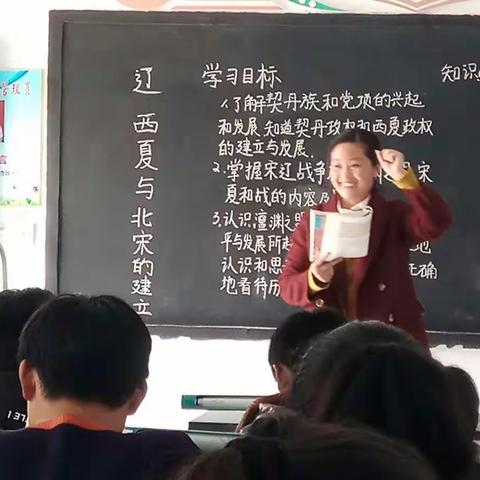 辽西夏与北宋的建立
学习目标
知识
1.了解契丹族和党项的兴起
和发展,知道契丹政权和西夏政权
的建立与发展.
2.掌握宋辽战争 宋
夏和战的内容
3.认识澶渊之
平与发展所起 地
认识和思 正确
地看待历
管理员
言